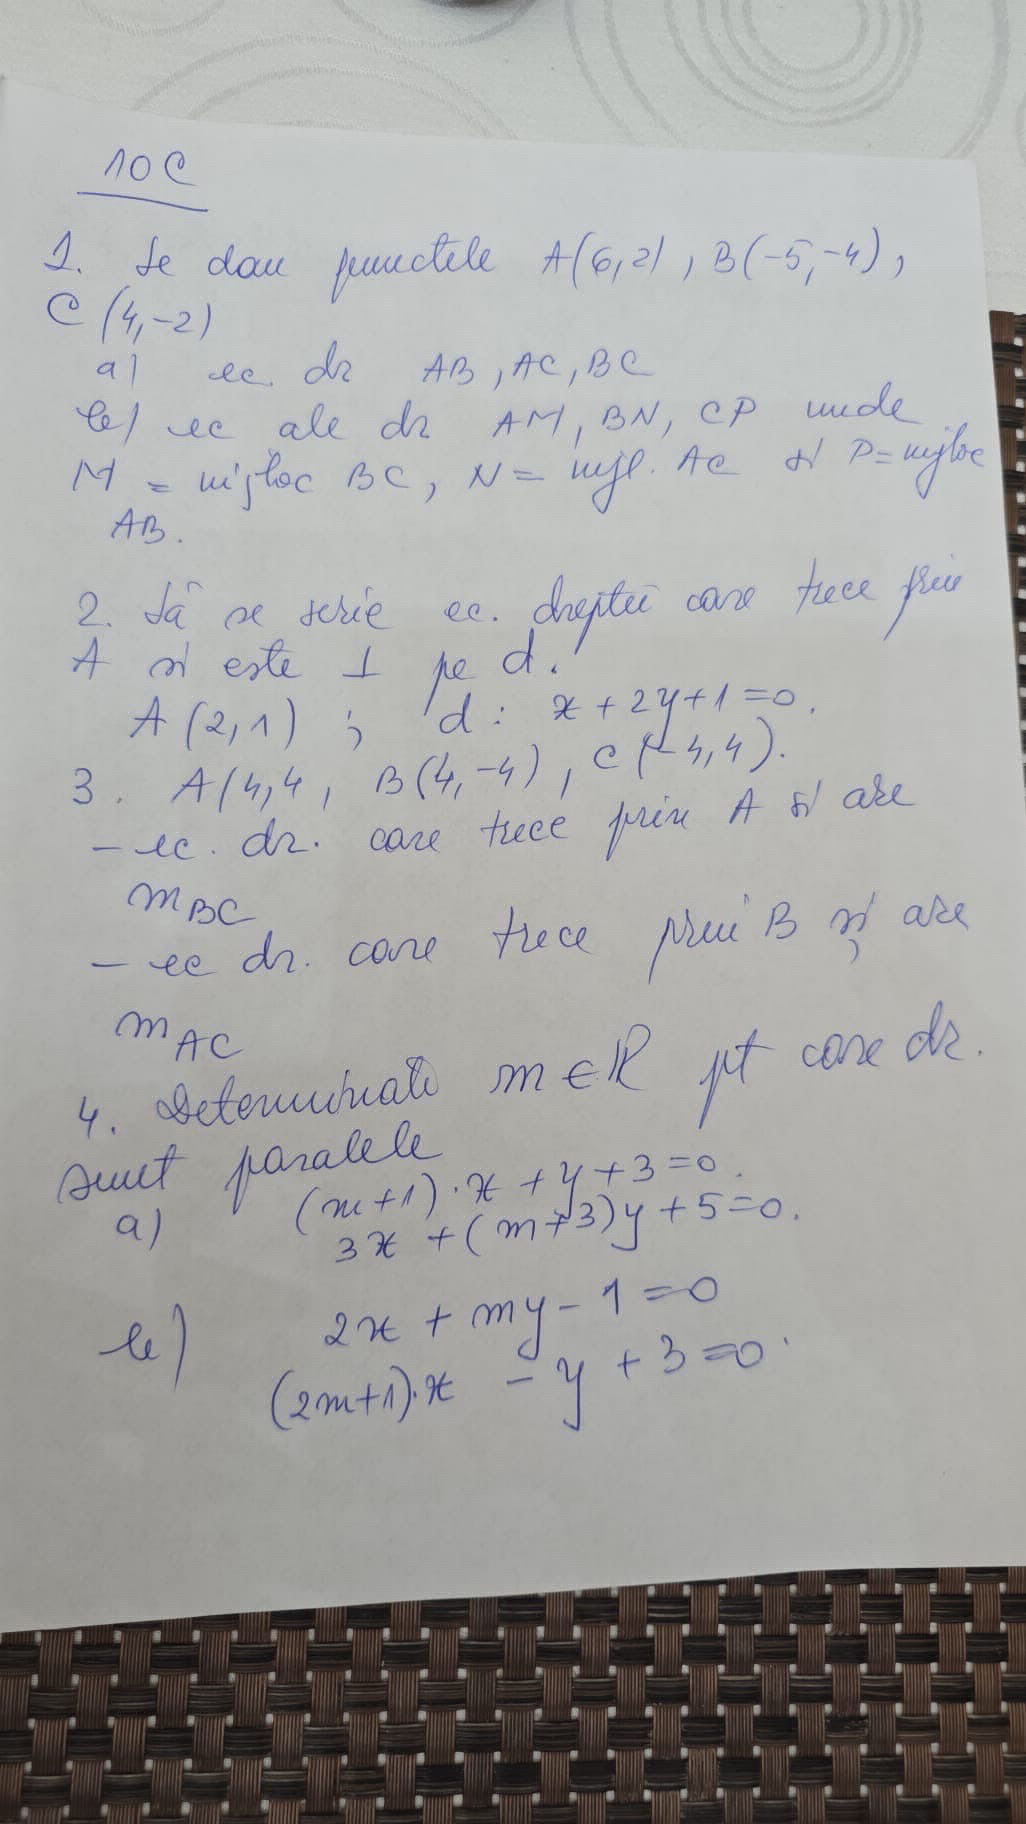 10 C
1. Se dau punctele A(6,2), B(-5,-4),
C(4,-2)
a) ec. dr AB, AC, BC
b) ec ale dr AM, BN, CP unde
M = mijloc BC, N = mijl. AC si P = mijloc
AB.
2. Să se scrie ec. dreptei care trece prin
A si este ⊥ pe d.
A(2,1); d: x+2y+1=0.
3. A(4,4, B(4,-4), C(-4,4).
- ec. dr. care trece prin A si are
m BC
- ec dr. care trece prin B și are
m AC
4. Determinati m ∈ ℝ pt care dr.
sunt paralele
a) (m+1)·x + y + 3 = 0.
3x + (m+3)y + 5 = 0.
b) 2x + my - 1 = 0
(2m+1)·x - y + 3 = 0